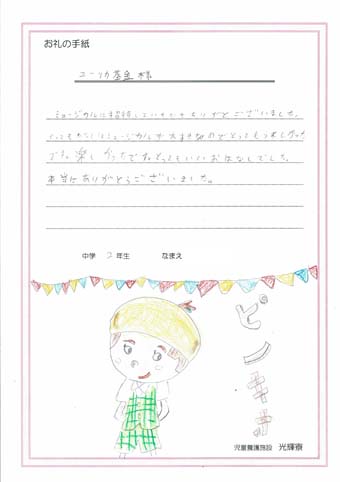 お礼の手紙
ユーリカ基金様
ミュージカルに招待していただきありがとうございました。
とってもたのしいミュージカルが大すきなのでとってもうれしかった
です。楽しかったです。とってもいいおはなしでした。
本当にありがとうございました。
中学 2 年生 なまえ
ピノキオ
児童養護施設 光輝寮